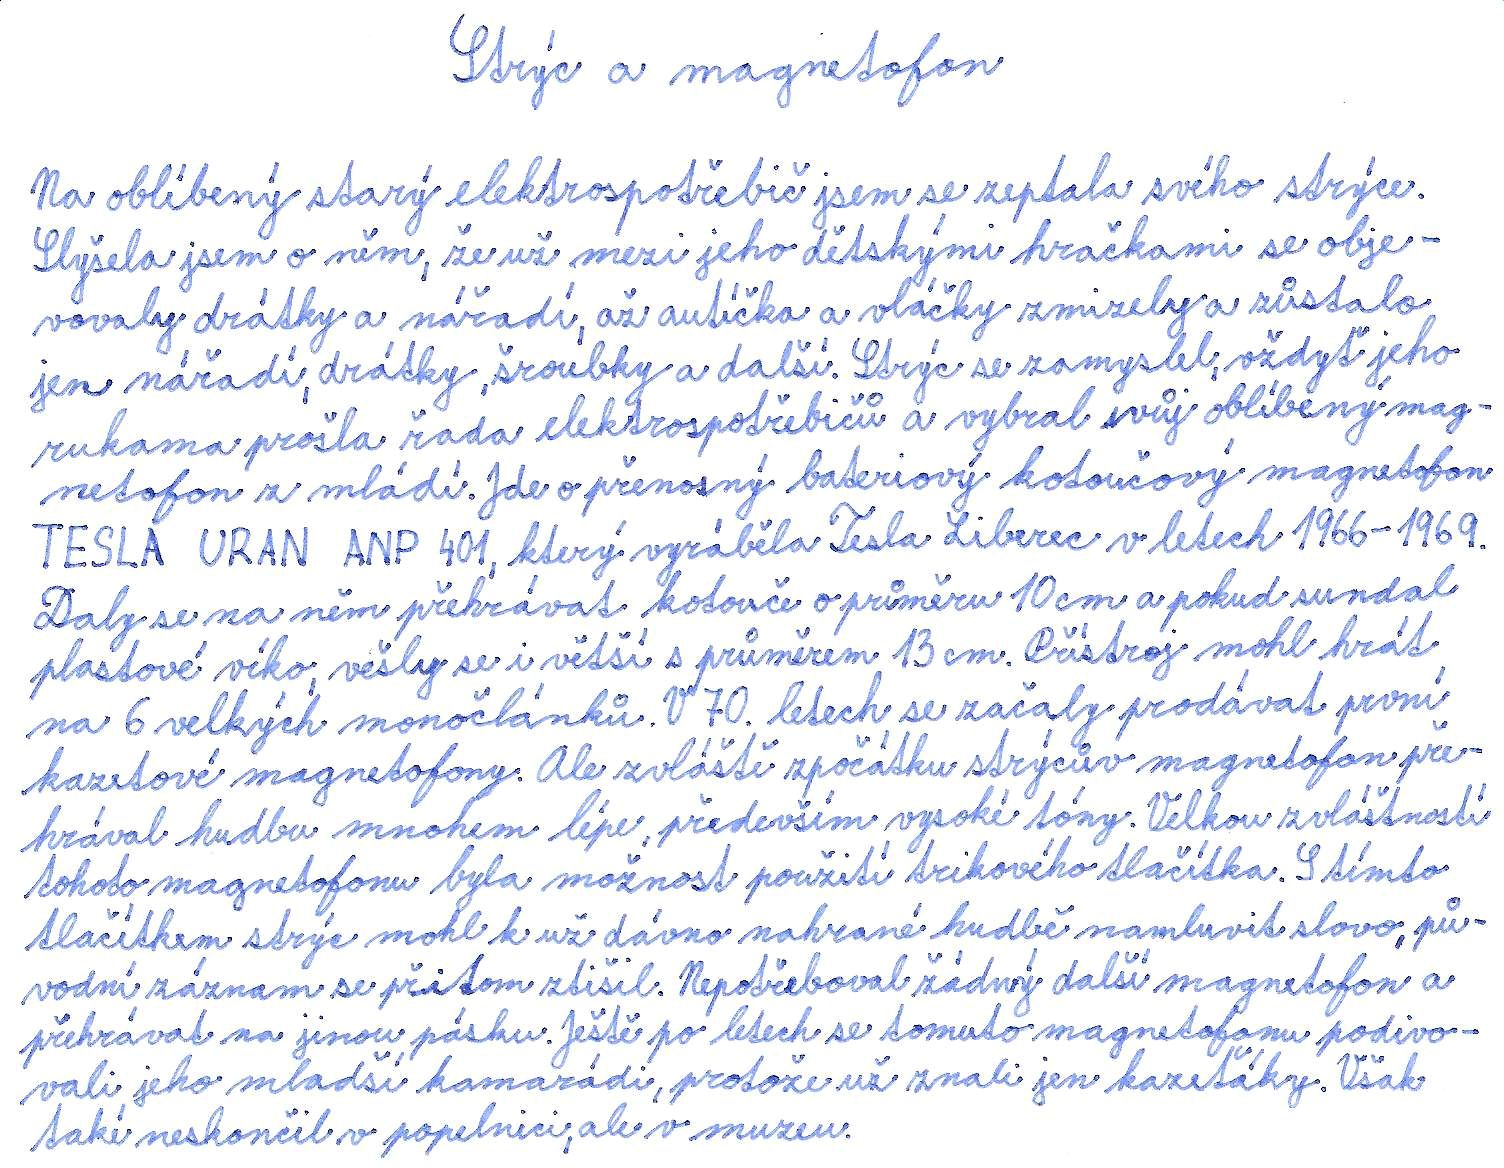 Strýc a magnetofon
Na oblíbený starý elektrospotřebič jsem se zeptala svého strýce.
Slyšela jsem o něm, že už mezi jeho dětskými hračkami se obje-
vovaly drátky a nářadí, až autíčka a vláčky zmizely a zůstalo
jen nářadí, drátky, šroubky a další. Strýc se zamyslel, vždyť jeho
rukama prošla řada elektrospotřebičů a vybral svůj oblíbený mag-
netofon z mládí. Jde o přenosný bateriový kotoučový magnetofon
TESLA URAN ANP 401, který vyráběla Tesla Liberec v letech 1966-1969.
Daly se na něm přehrávat kotouče o průměru 10cm a pokud sundal
plastové víko, vešly se i větší s průměrem 13cm. Přístroj mohl hrát
na 6 velkých monočlánků. V 70. letech se začaly prodávat první
kazetové magnetofony. Ale zvláště zpočátku strýcův magnetofon pře-
hrával hudbu mnohem lépe, především vysoké tóny. Velkou zvláštností
tohoto magnetofonu byla možnost použití trikového tlačítka. S tímto
tlačítkem strýc mohl k už dávno nahrané hudbě namluvit slovo, pů-
vodní záznam se přitom ztišil. Nepotřeboval žádný další magnetofon a
přehrávat na jinou pásku. Ještě po letech se tomuto magnetofonu podivo-
vali jeho mladší kamarádi, protože už znali jen kazeťáky. Však
také neskončil v popelnici, ale v muzeu.